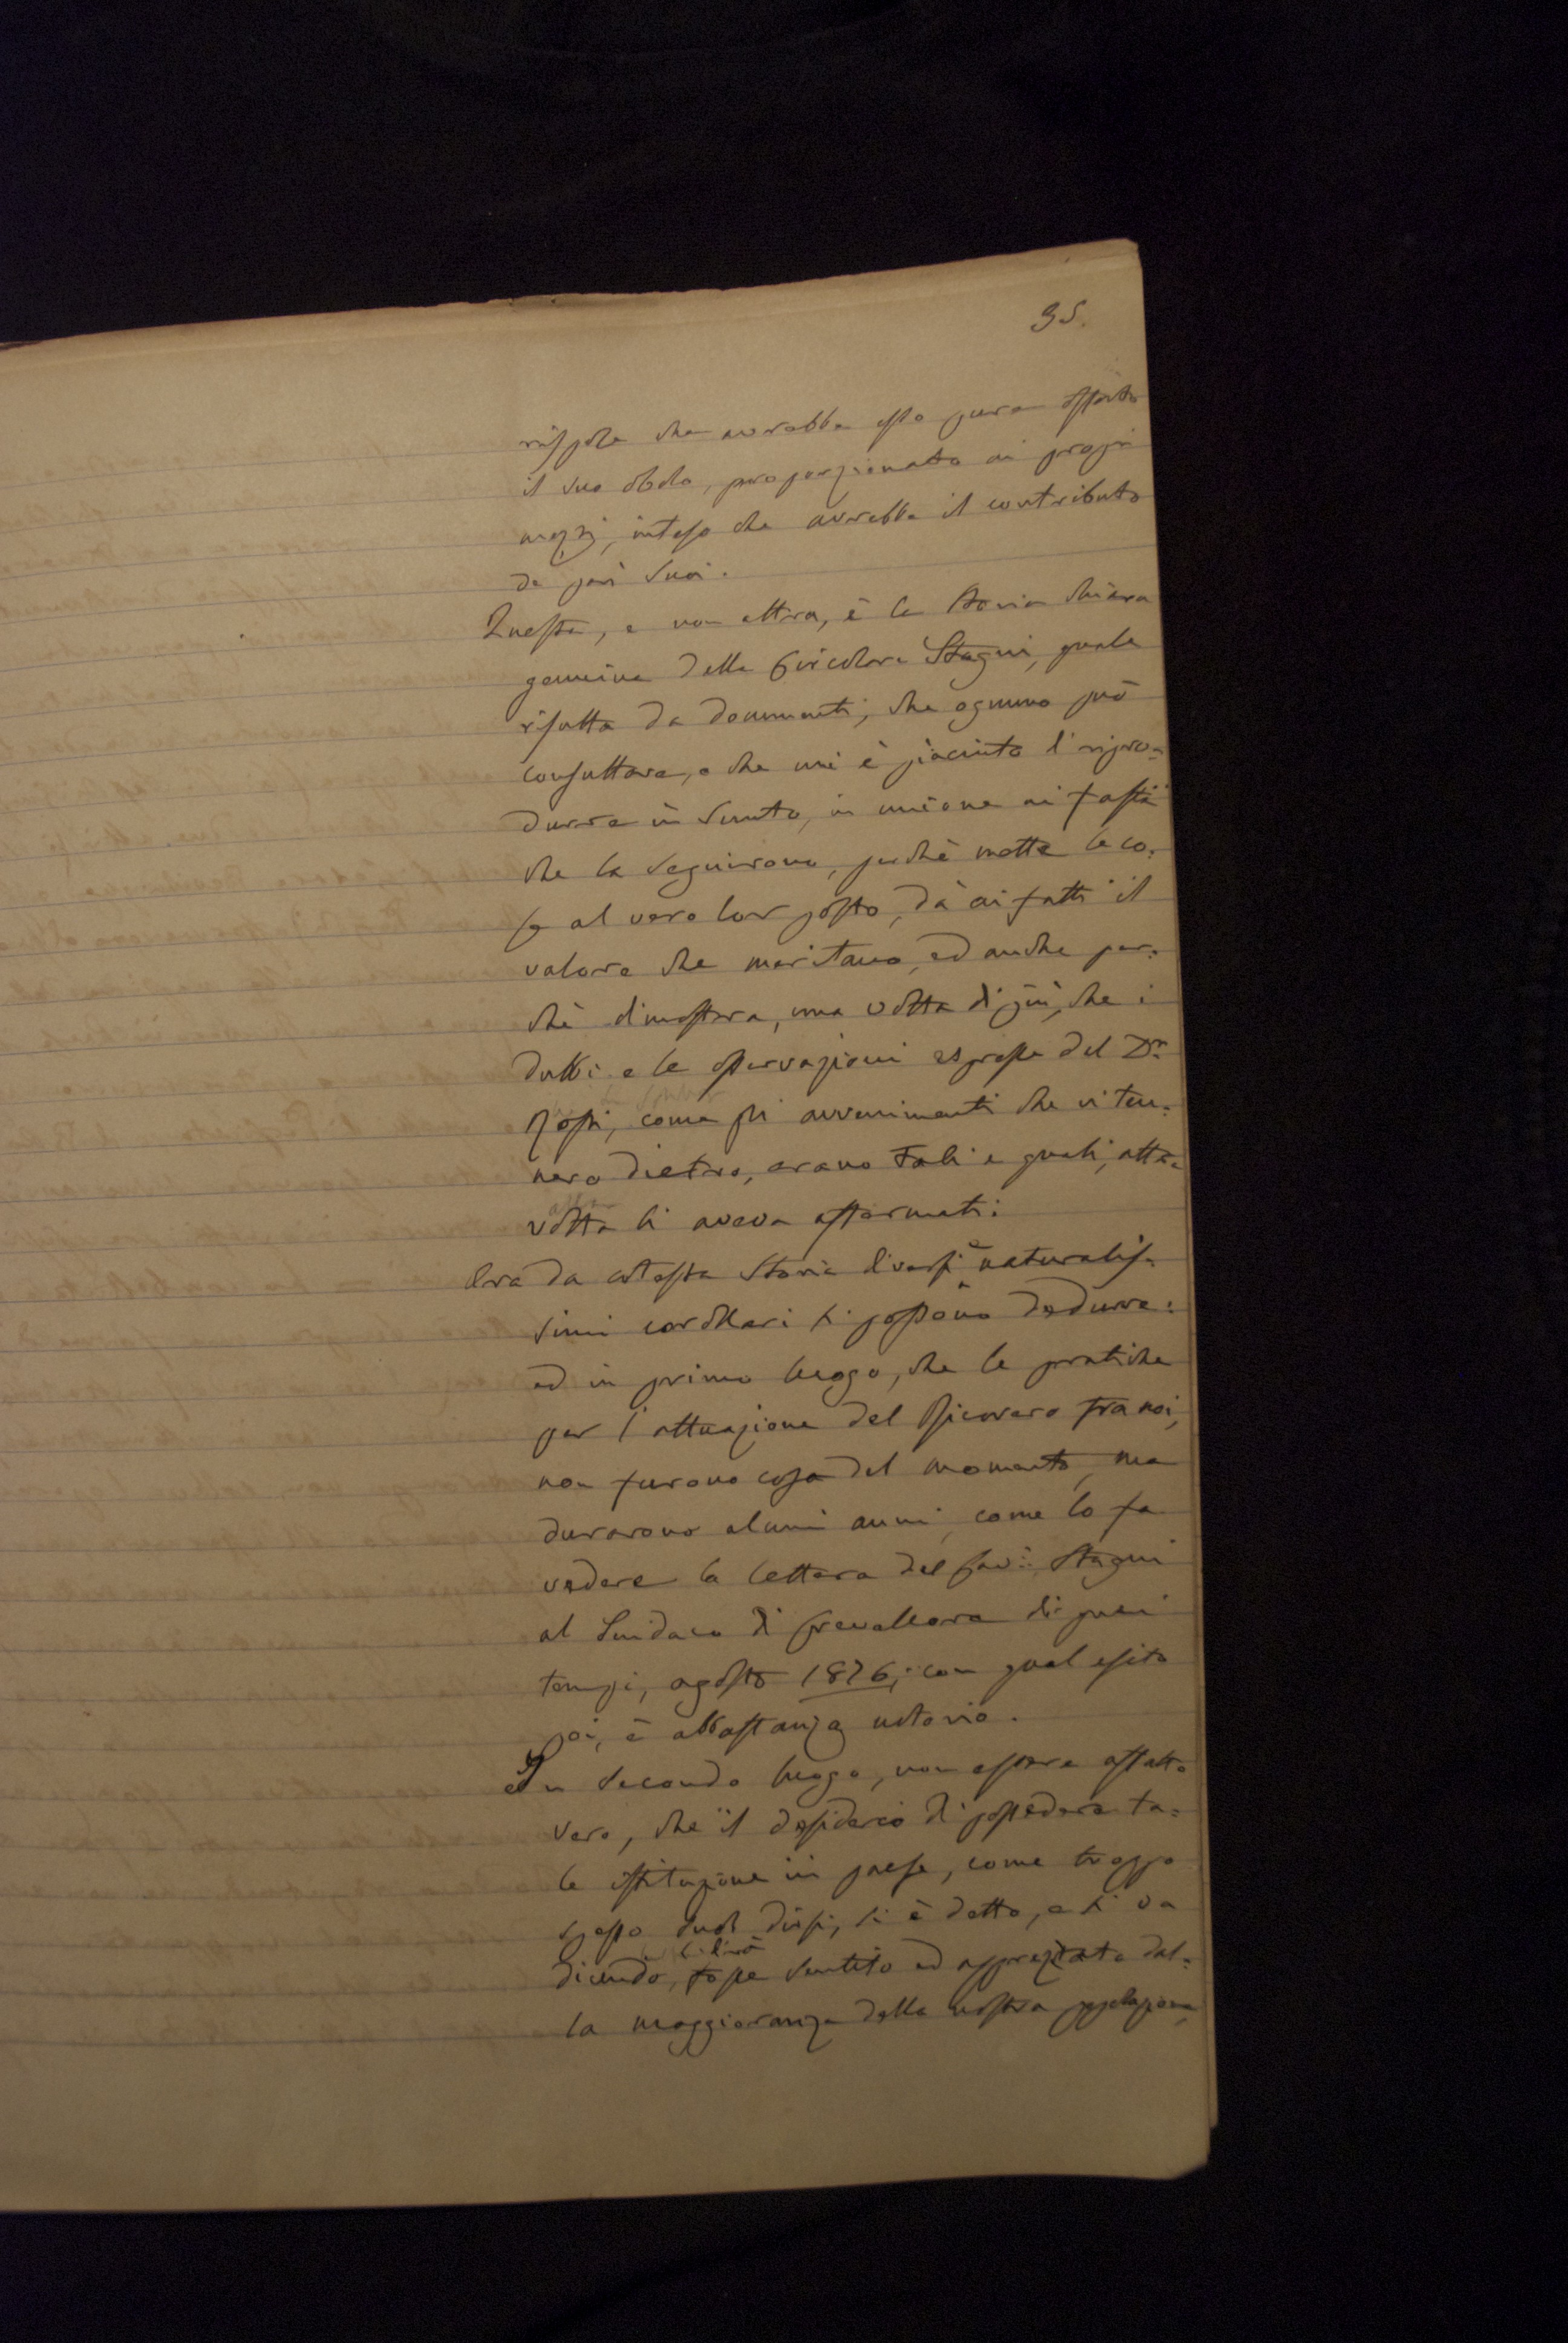 35.
rispose che avrebbe esso pure offerto
il suo obolo, proporzionato ai propri
mezzi, inteso che avrebbe il contributo
de pari suoi.
Questa, e non altra, è la storia chiara
genuina della Circolare Stagni, quale
risulta da documenti, che ognuno può
consultare, e che mi è piaciuto l ripro=
durre in sunto, in unione ai fasti
che la seguirono, perchè mette le co=
se al vero lor posto, dà ai fatti il
valore che meritano, ed anche per=
chè dimostra, una volta di più, che i
dubbi e le osservazioni espresse del Dr
Rossi, come gli avvenimenti che vi ten=
nero dietro, erano tali e quali,
volta li aveva affermati:
Ora da cotesta storia diversi e naturalis=
simi corollari si possono dedurre:
ed in primo luogo, che le pratiche
per l'attuazione del Ricovero fra noi,
non furono cosa del momento, ma
durarono alcuni anni, come lo fa
vedere la lettera del Cav: Stagni
al Sindaco di Crevalcore di quei
tempi, agosto 1876; con qual esito
poi, è abbastanza notorio.
In secondo luogo, non essere affatto
vero, che il desiderio di possedere ta=
le istituzione in paese, come troppo
spesso suol dirsi, si è detto, e si va
dicendo, fosse sentito ed apprezzato dal=
la maggioranza della nostra popolazione,